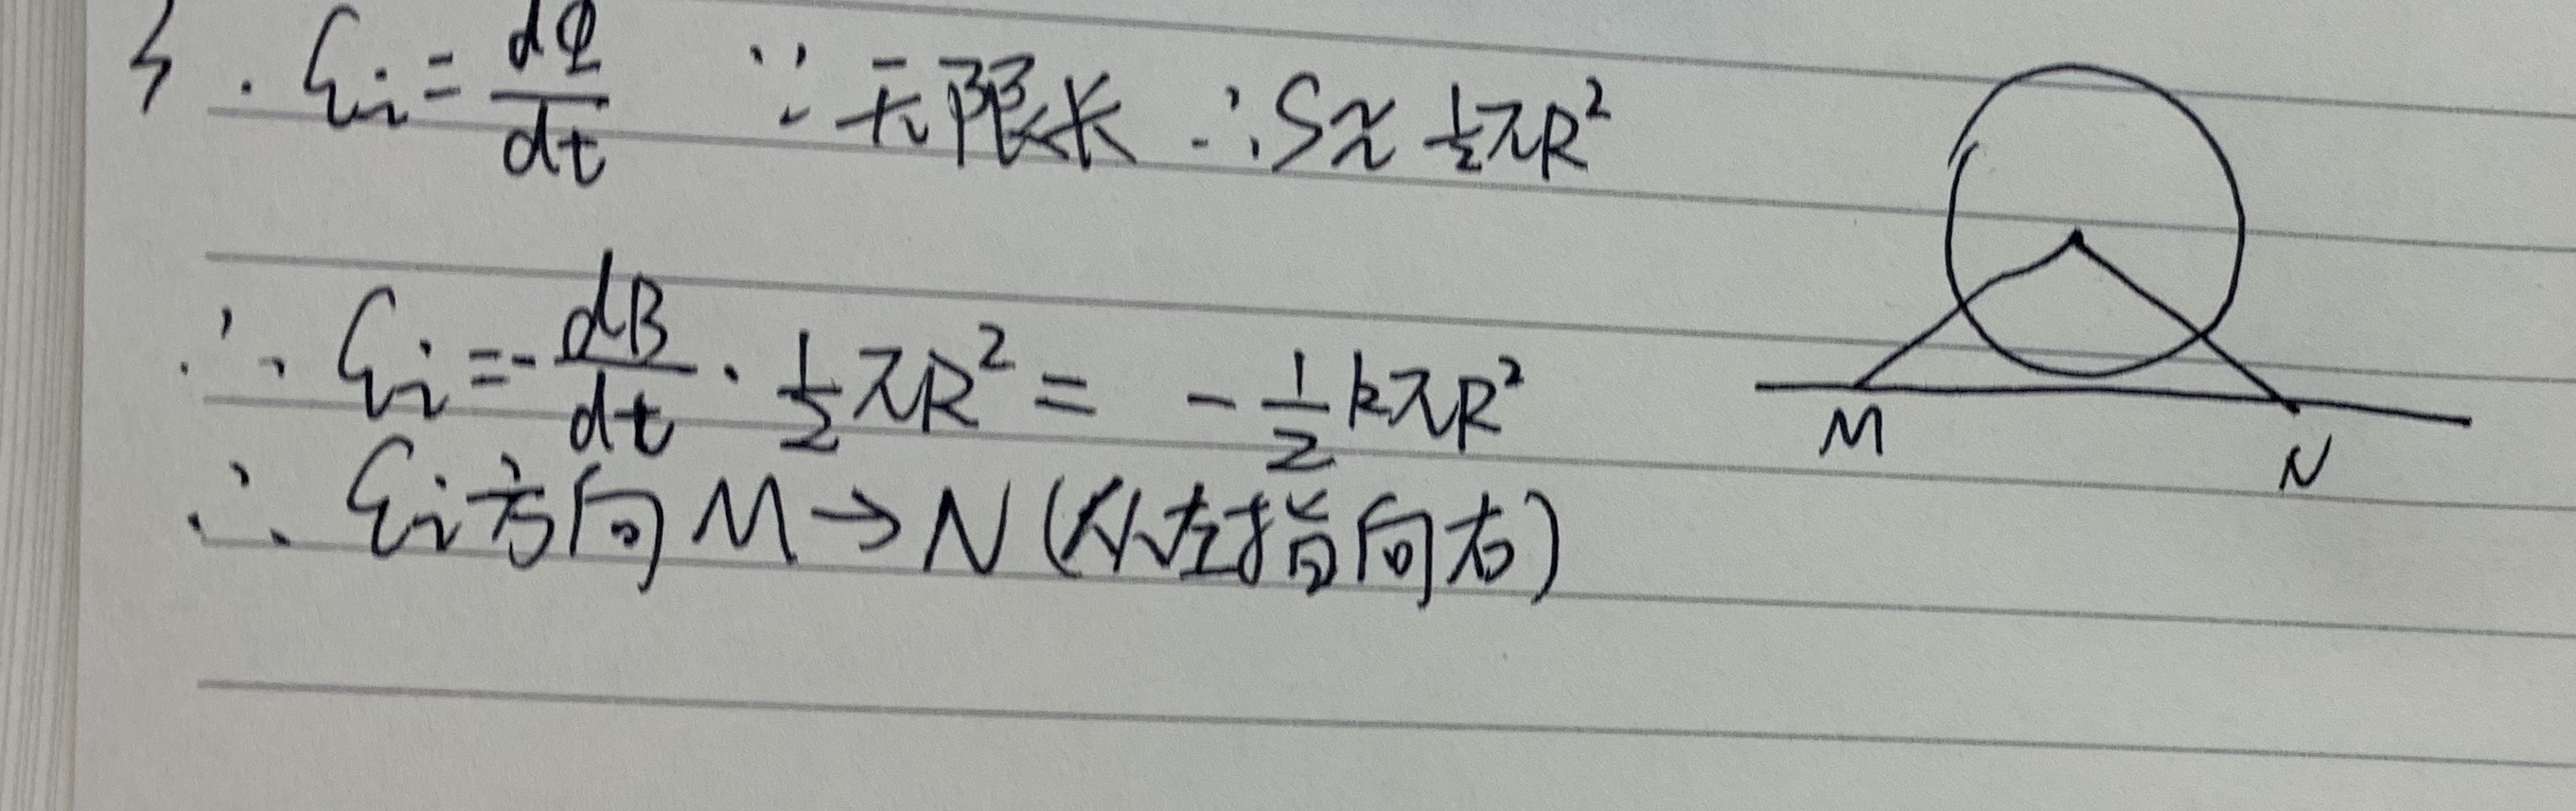 5. εi = dΦ/dt ∵无限长 ∴S≈ ½πR²
∴ εi = -dB/dt · ½πR² = -½kπR²
∴ εi方向 M→N (从左指向右)
M
N